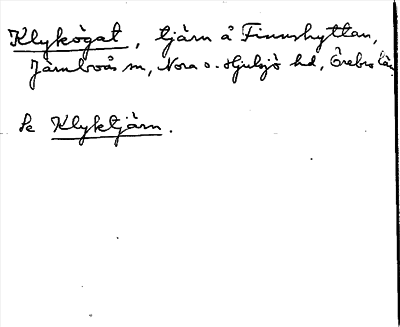 Klykögat, tjärn å Finnshyttan,
Järnboås sn, Nora o. Hjulsjö hd, Örebro län
Se Klyktjärn.